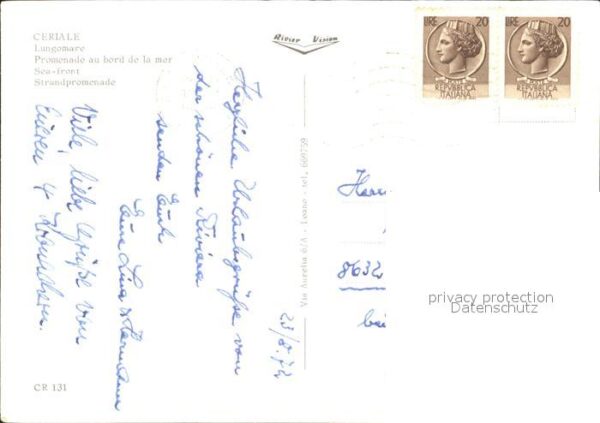 CERIALE
Lungomare
Promenade au bord de la mer
Sea-front
Strandpromenade
Rivier Vision
LIRE 20
REPVBBLICA
ITALIANA
LIRE 20
REPVBBLICA
ITALIANA
Herzliche Urlaubsgrüße von
der schönen Riviera
senden Euch
Eure Lina & Hermann
Viele liebe Grüße von
23/8.72
Via Aurelia 6/A - Loano - tel. 669759
Herr
8632
bei
privacy protection
Datenschutz
CR 131